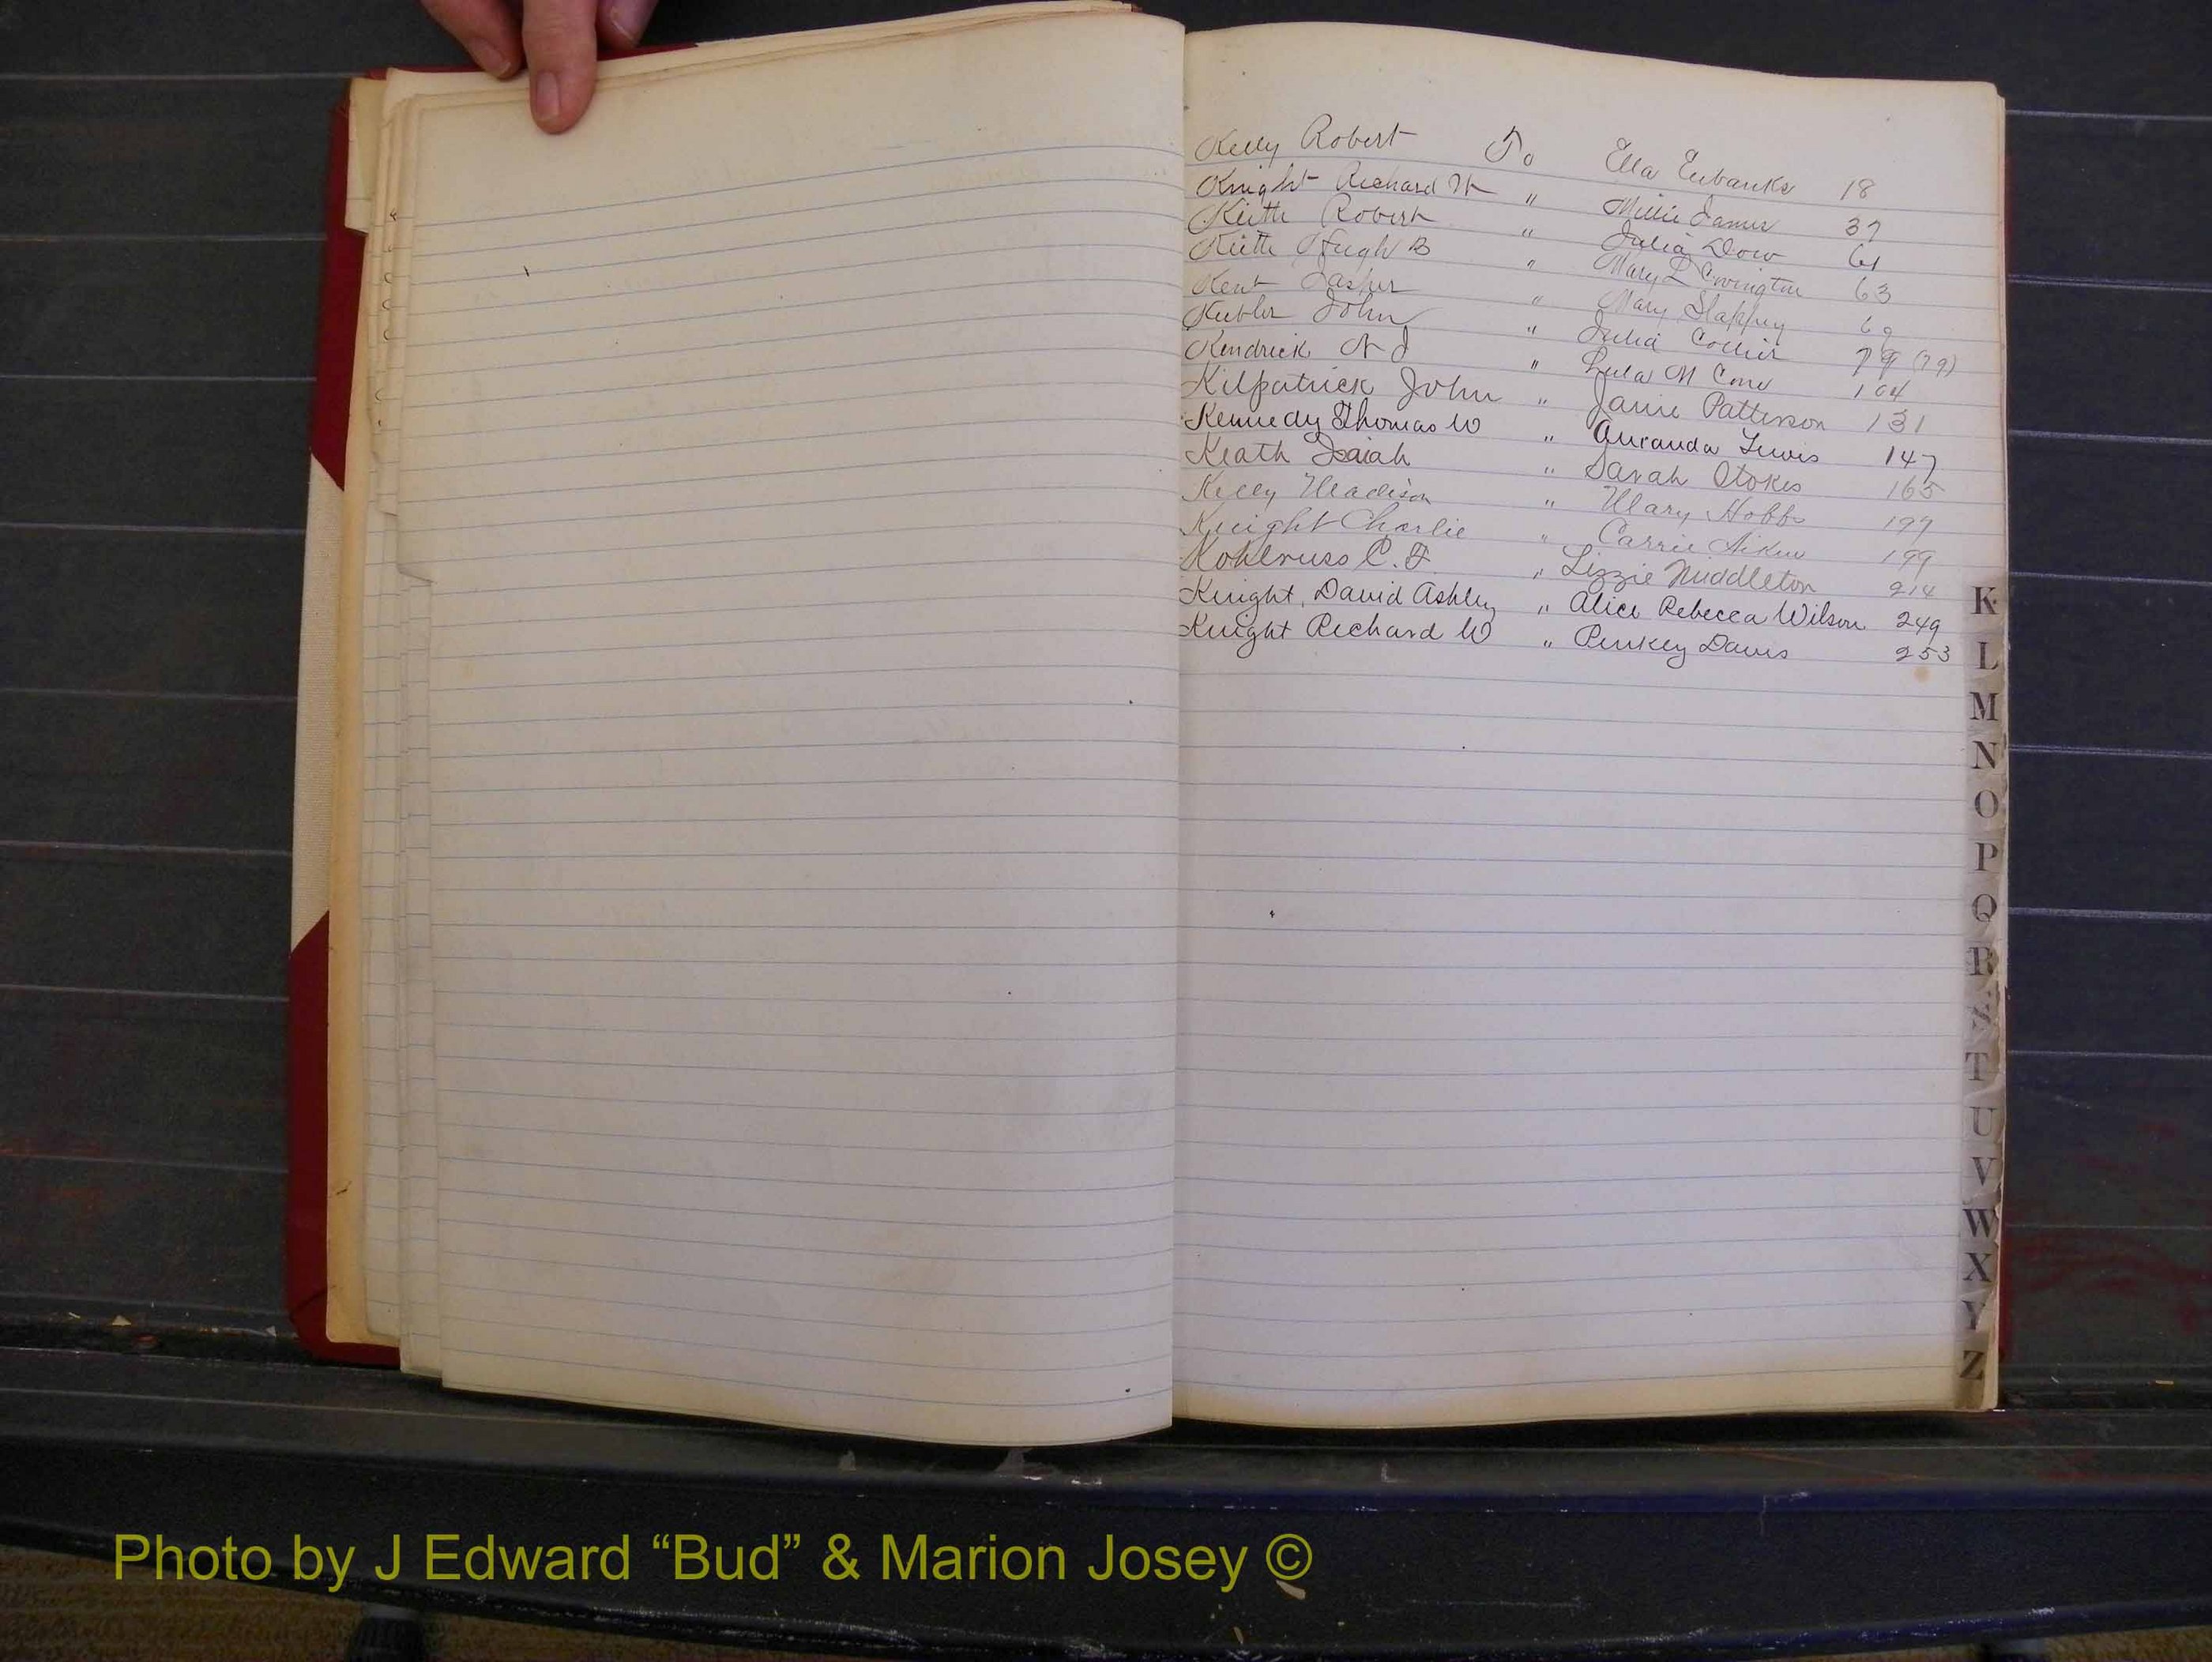 Kelly Robert To Ella Eubanks 18
Knight Richard W " Millie James 37
Keith Robert " Julia Dow 61
Keith Hugh B " Mary L Covington 63
Kent Jasper " Mary Slappey 69
Keebler John " Julia Collier 79 (79)
Kendrick N J " Lula M Cone 104
Kilpatrick John " Janie Patterson 131
Kennedy Thomas W " Auranda Lewis 147
Keath Isaiah " Sarah Stokes 165
Kelly Madison " Mary Hobbs 197
Knight Charlie " Carrie Aiken 199
Kohlruss C. F. " Lizzie Middleton 214
Knight, David Ashley " Alice Rebecca Wilson 249
Knight Richard W " Pinkey Davis 253
K
L
M
N
O
P
Q
R
S
T
U
V
W
X
Y
Z
Photo by J Edward “Bud” & Marion Josey ©